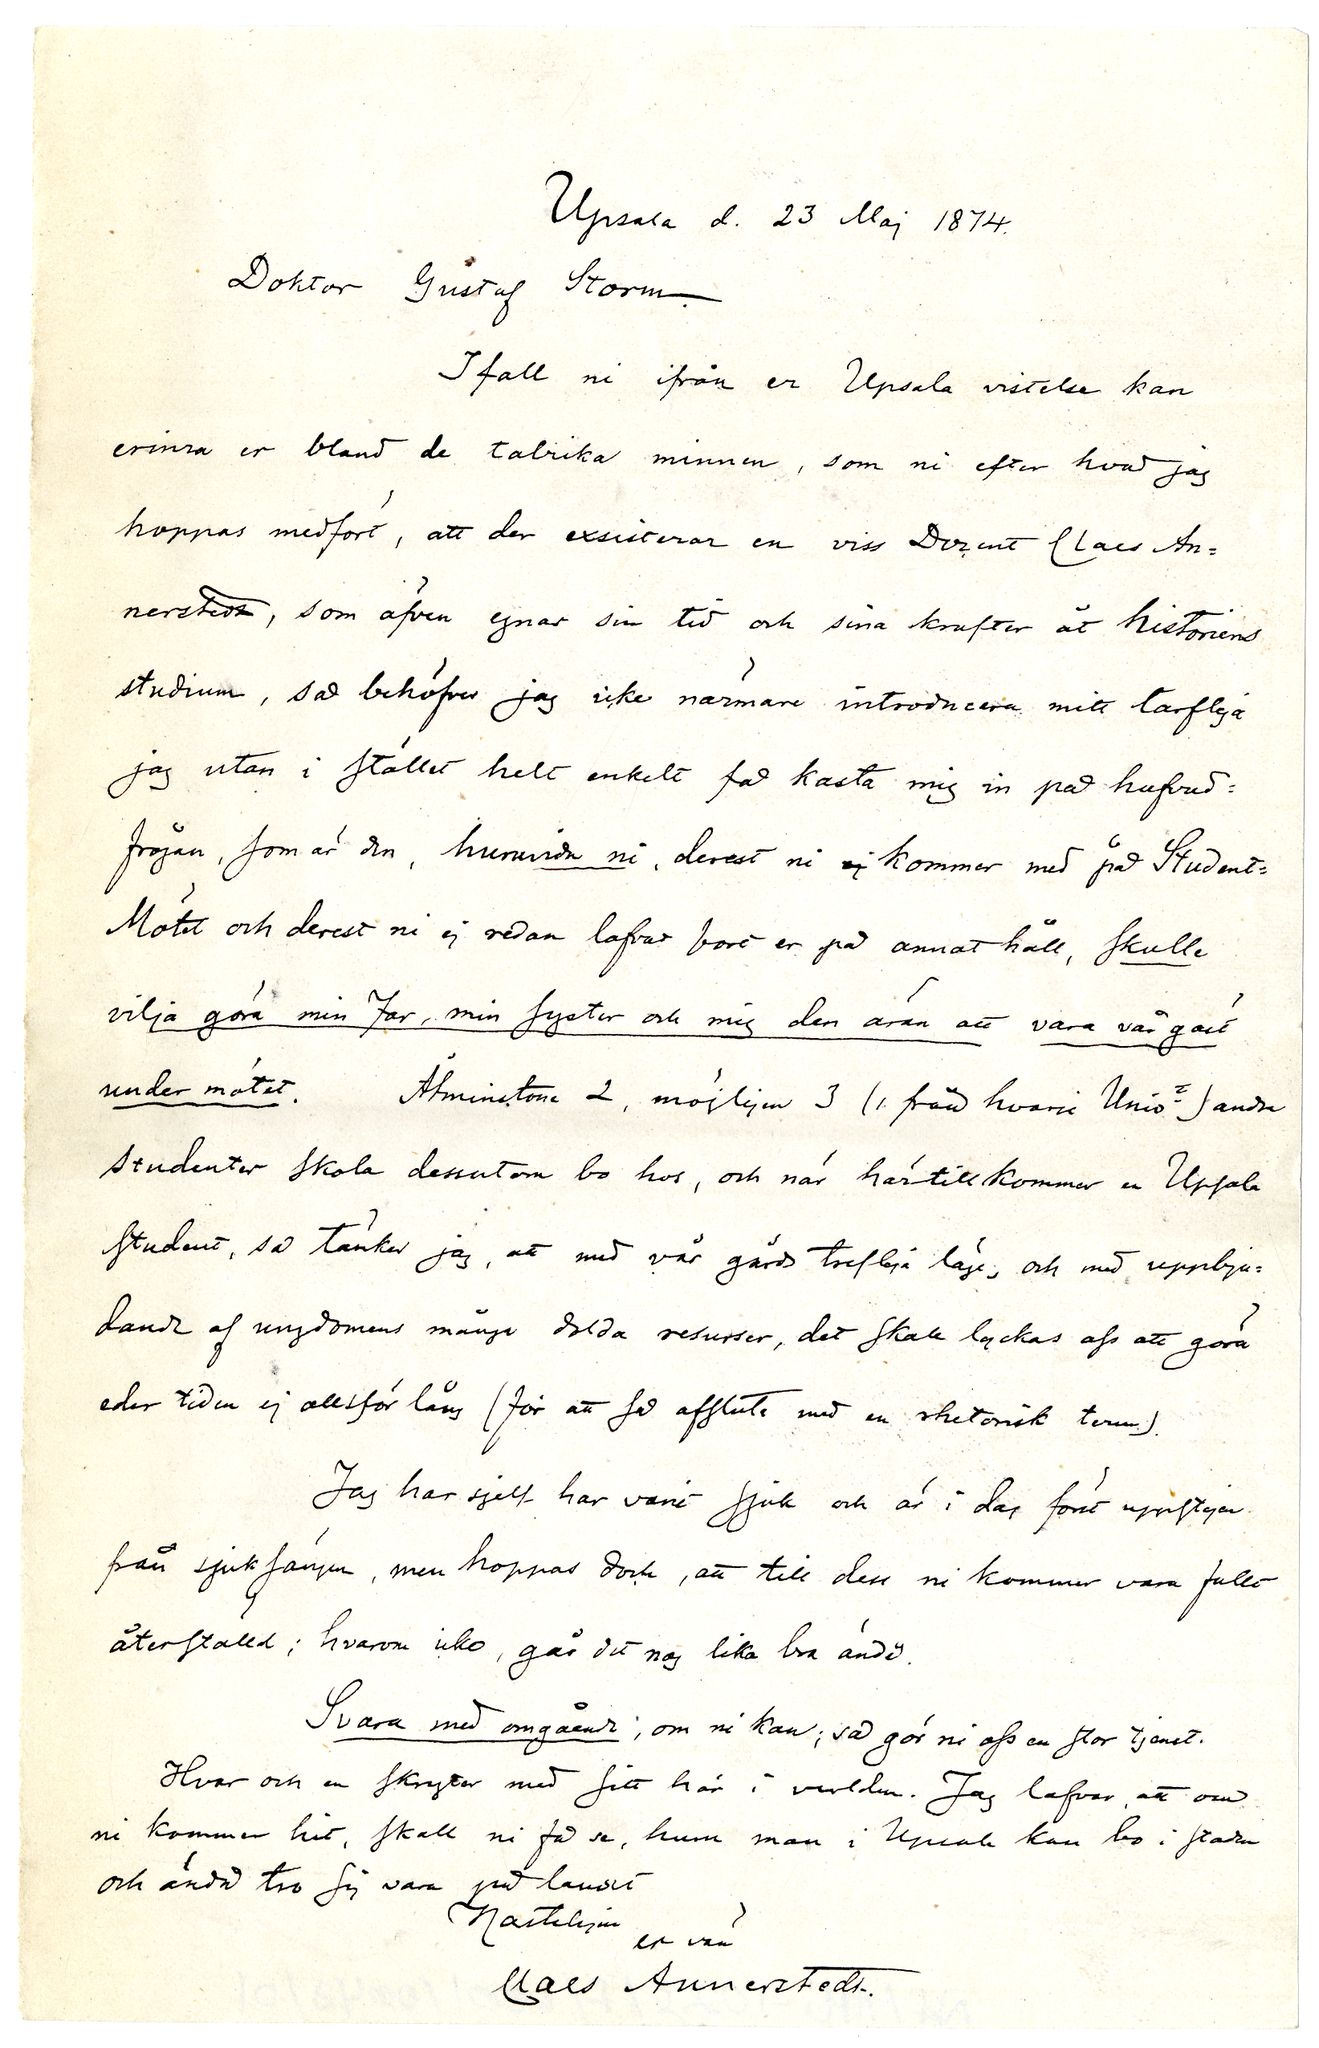 Upsala d. 23 Maj 1874.
Doktor Gustaf Storm.
Ifall ni ifrån er Upsala vistelse kan
erinra er bland de talrika minnen, som ni efter hvad jag
hoppas medfört, att der exsisterar en viss Docent Claes An=
nerstedt, som äfven egnar sin tid och sina krafter åt historiens
studium, så behöfver jag icke närmare introducera mitt tarfliga
jag utan i stället helt enkelt få kasta mig in på hufvud=
frågan, som är den, huruvida ni, derest ni ej kommer med på Student=
Mötet och derest ni ej redan lofvat bort er på annat håll, skulle
vilja göra min Far, min syster och mig den äran att vara vår gäst
under mötet. Åtminstone 2, möjligen 3 (1 från hvarje Unio) andra
studenter skola dessutom bo hos, och när härtill kommer en Upsala
student, så tänker jag, att med vår gårds trefliga läge, och med uppbju=
dande af ungdomens många dolda resurser, det skall lyckas oss att göra
eder tiden ej alltför lång (för att så afsluta med en rhetorisk term).
Jag har sjelf har varit sjuk och är i dag först uppstigen
från sjuksängen, men hoppas dock, att till dess ni kommer vara fullt
återställd; hvarom icke, går det nog lika bra ändå.
Svara med omgående, om ni kan; så gör ni oss en stor tjenst.
Hvar och en skryter med sitt här i verlden. Jag lofvar, att om
ni kommer hit, skall ni få se, huru man i Upsala kan bo i staden
och ändå tro sig vara på landet
Hasteligen
er vän
Claes Annerstedt.